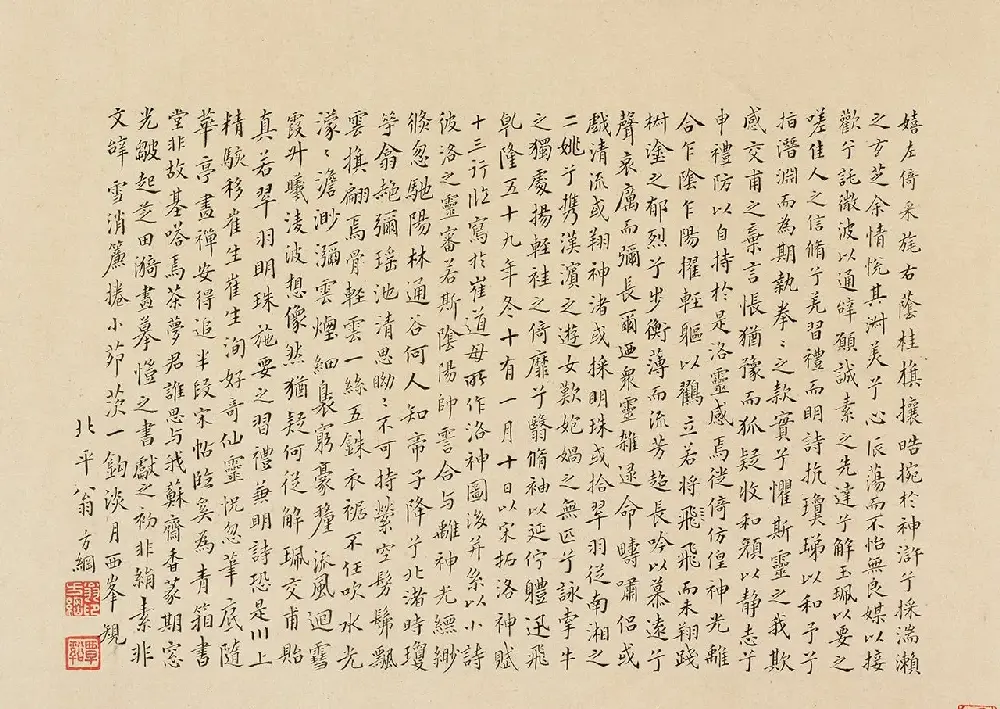 嬉左倚采旄右蔭桂旗攘皓捥於神滸兮採湍瀨
之玄芝余情恱其淑美兮心振蕩而不怡無良媒以接
歡兮託微波以通辭願誠素之先達兮解玉珮以要之
嗟佳人之信脩兮羌習禮而明詩抗瓊珶以和予兮
指潛淵而為期執拳〻之款實兮懼斯靈之我欺
感交甫之棄言悵猶豫而狐疑收和顏以靜志兮
申禮防以自持於是洛靈感焉徙倚仿偟神光離
合乍陰乍陽擢輕軀以鸖立若將飛〻飛而未翔踐
椒塗之郁烈兮步衡薄而流芳超長吟以慕遠兮
聲哀厲而彌長爾迺衆靈雜遝命疇嘯侶或
戲清流或翔神渚或採明珠或拾翠羽從南湘之
二姚兮攜漢濱之遊女歎匏媧之無匹兮詠牽牛
之獨處揚輕袿之倚靡兮翳脩袖以延佇體迅飛
乾隆五十九年冬十有一月十日以宋拓洛神賦
十三行臨寫於崔道母所作洛神圖後并系以小詩
彼洛之靈審若斯陰陽帥合与離神光縹緲
倏忽馳陽林通谷何人知帝子降兮北渚時瓊
翕赩彌瑶池清思眑〻不可持縈空髣髴飄
雲旗翩焉骨輕雲一絲五銖衣裾不任吹水光
濛〻澹渺瀰雲煙細裊窮豪釐添風迴雪
霞升曦淩波想像然猶疑何從解珮交甫貽
真若翠羽明珠施要之習禮兼明詩恐是川上
精駭移崔生崔生洵好奇仙靈怳忽筆底隨
華亭畫禪安得追半段宋帖臨奚為青箱書
堂非故基嗒焉茶夢君誰思与我蘇齋香篆期窓
光皺起芝田漪畫摹愷之書獻之初非絹素非
文辭雪消簾捲小茆茨一鉤淡月西峯覘
北平翁方綱
翁方綱印
覃谿